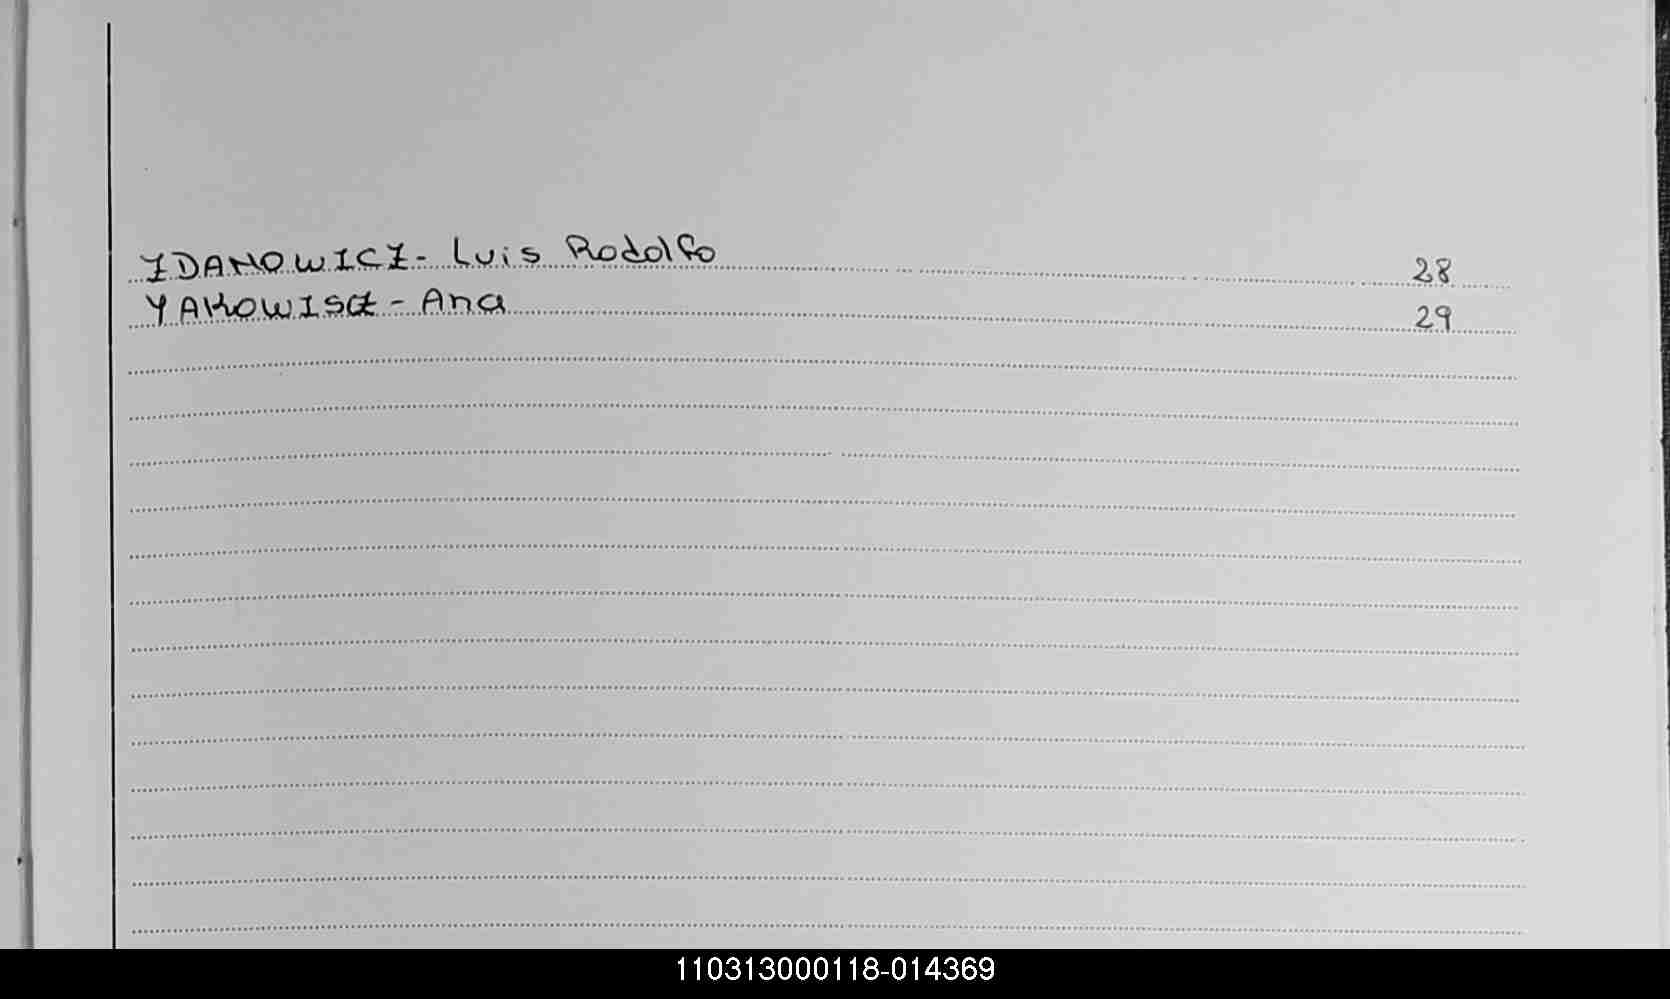 ZDANOWICZ - Luis Rodolfo 28
YAKOWISCZ - Ana 29
110313000118-014369